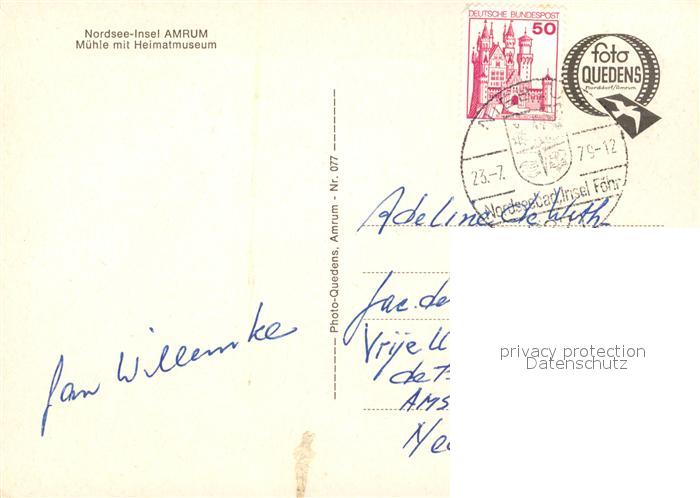 Nordsee-Insel AMRUM
Mühle mit Heimatmuseum
DEUTSCHE BUNDESPOST
50
foto
QUEDENS
Norddorf/Amrum
23.-7.
79-12
Nordseebad Insel Föhr
Photo-Quedens, Amrum - Nr. 077
Adeline de With
Jac. de
Vrije U
de
AMS
Ne
Jan Willemke
privacy protection
Datenschutz